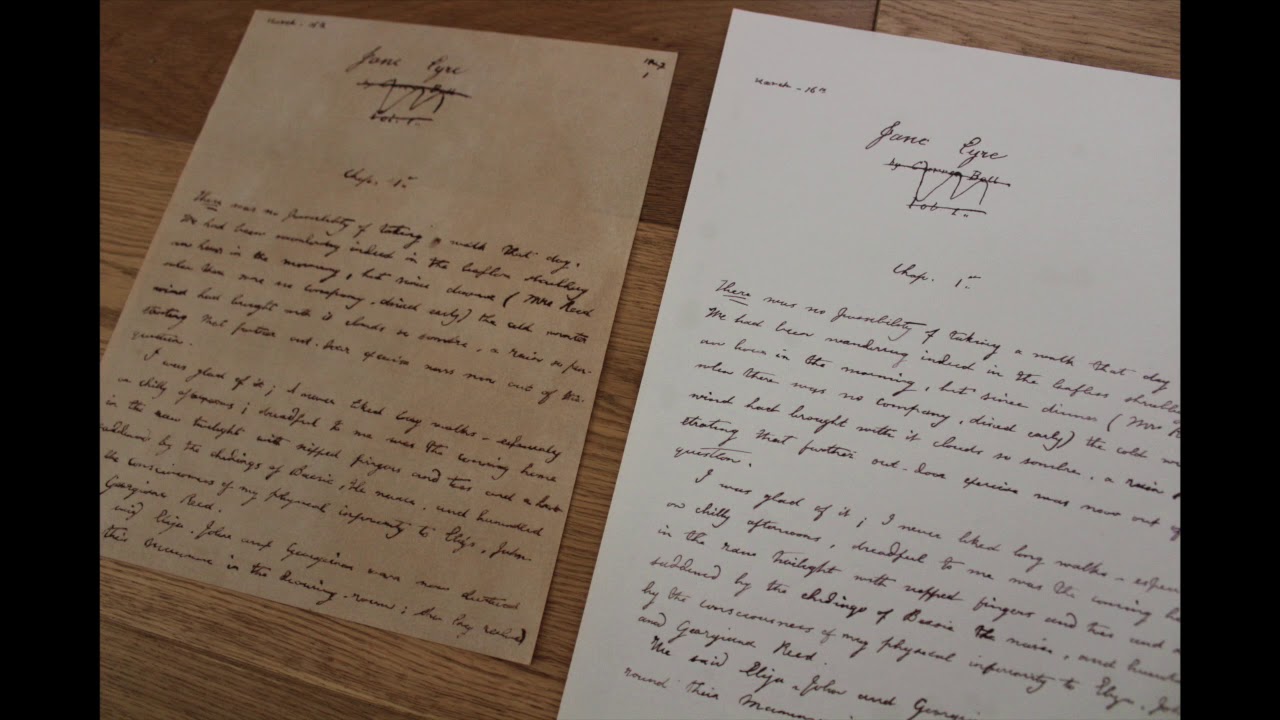 March - 16th
1847
1
Jane Eyre
by Currer Bell
Vol. 1.
Chap. 1st
There was no possibility of taking a walk that day.
We had been wandering indeed in the leafless shrubbery
an hour in the morning, but since dinner (Mrs Reed
when there was no company, dined early) the cold winter
wind had brought with it clouds so sombre, a rain so pen-
etrating that further out-door exercise was now out of the
question.
I was glad of it; I never liked long walks - especially
on chilly afternoons; dreadful to me was the coming home
in the raw twilight with nipped fingers and toes and a heart
saddened by the chidings of Bessie, the nurse, and humbled
by the consciousness of my physical inferiority to Eliza, John
Georgiana Reed.
said Eliza, John and Georgiana were now clustered
their mamma in the drawing-room; she lay
March - 16th
Jane Eyre
by Currer Bell
Vol. 1.
Chap. 1st
There was no possibility of taking a walk that day
We had been wandering indeed in the leafless
an hour in the morning, but since dinner (Mrs
when there was no company, dined early) the cold
wind had brought with it clouds so sombre, a rain
etrating that further out-door exercise was now out of
question.
I was glad of it; I never liked long walks -
on chilly afternoons, dreadful to me was the coming
in the raw twilight with nipped fingers and toes and a
saddened by the chidings of Bessie the nurse, and
by the consciousness of my physical inferiority to Eliza,
and Georgiana Reed.
The said Eliza, John and
round their